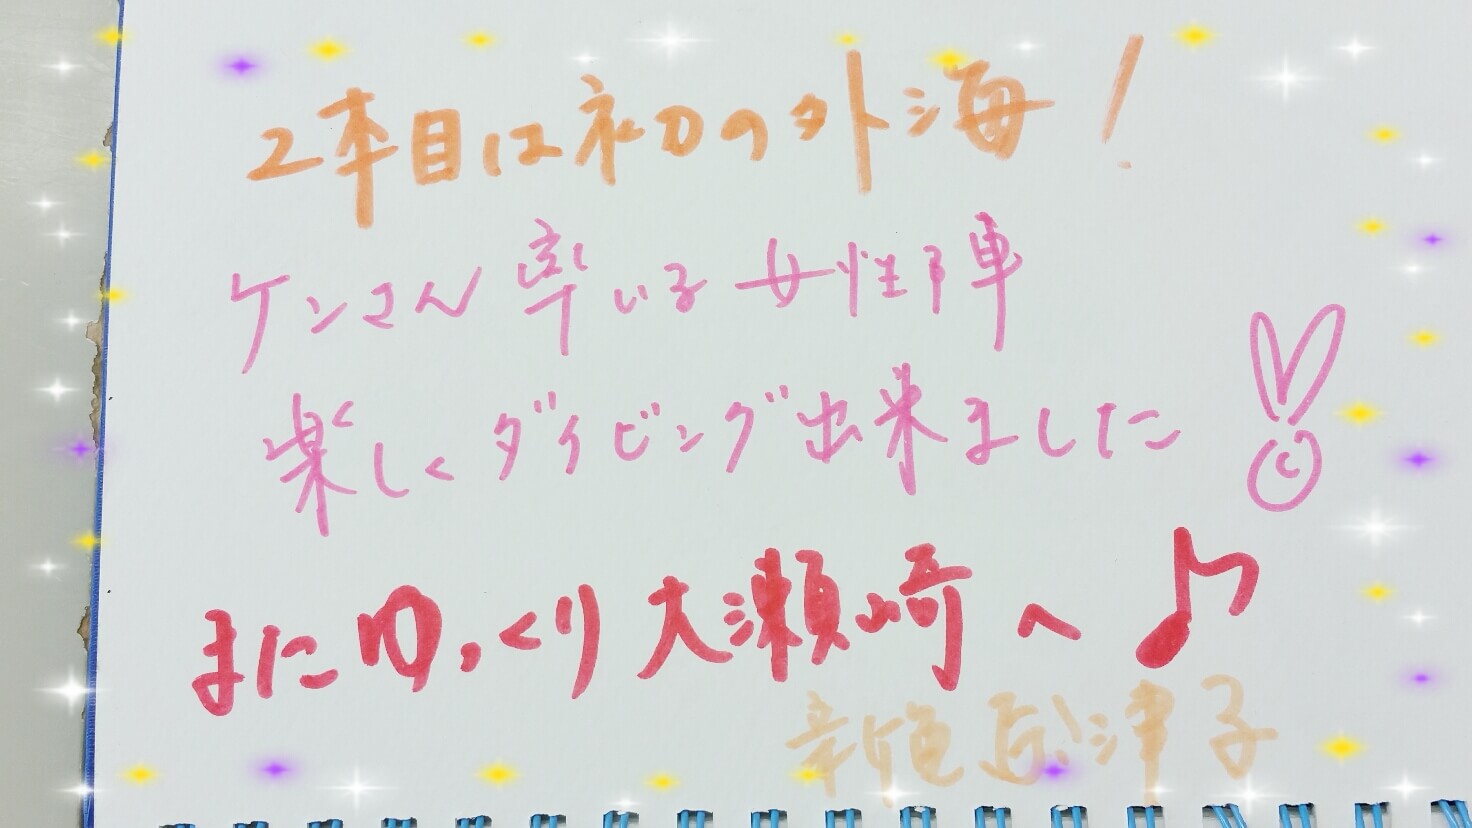 2本目は初の外海！
ケンさん率いる女性陣
楽しくダイビング出来ました
またゆっくり大瀬崎へ♪
津子